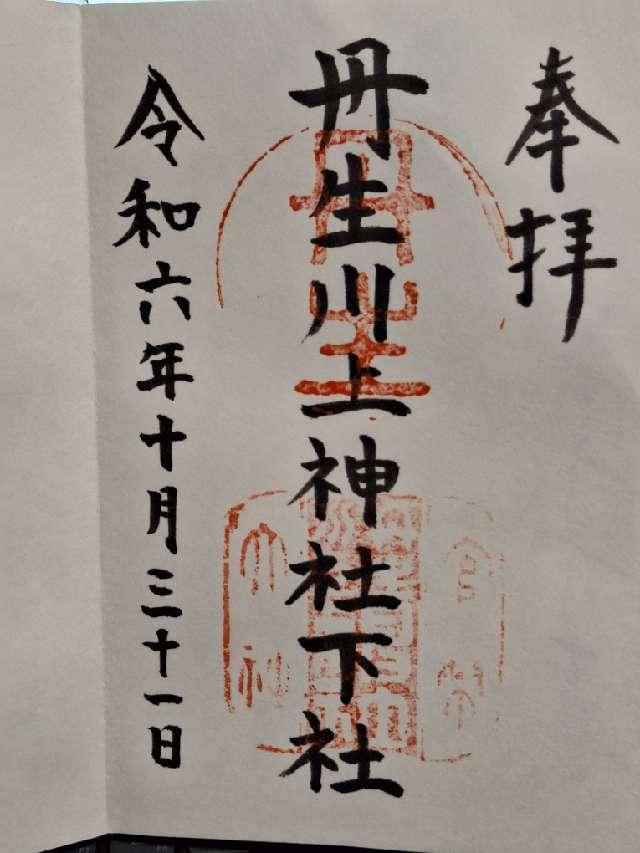 奉拝
丹生川上神社下社
令和六年十月三十一日